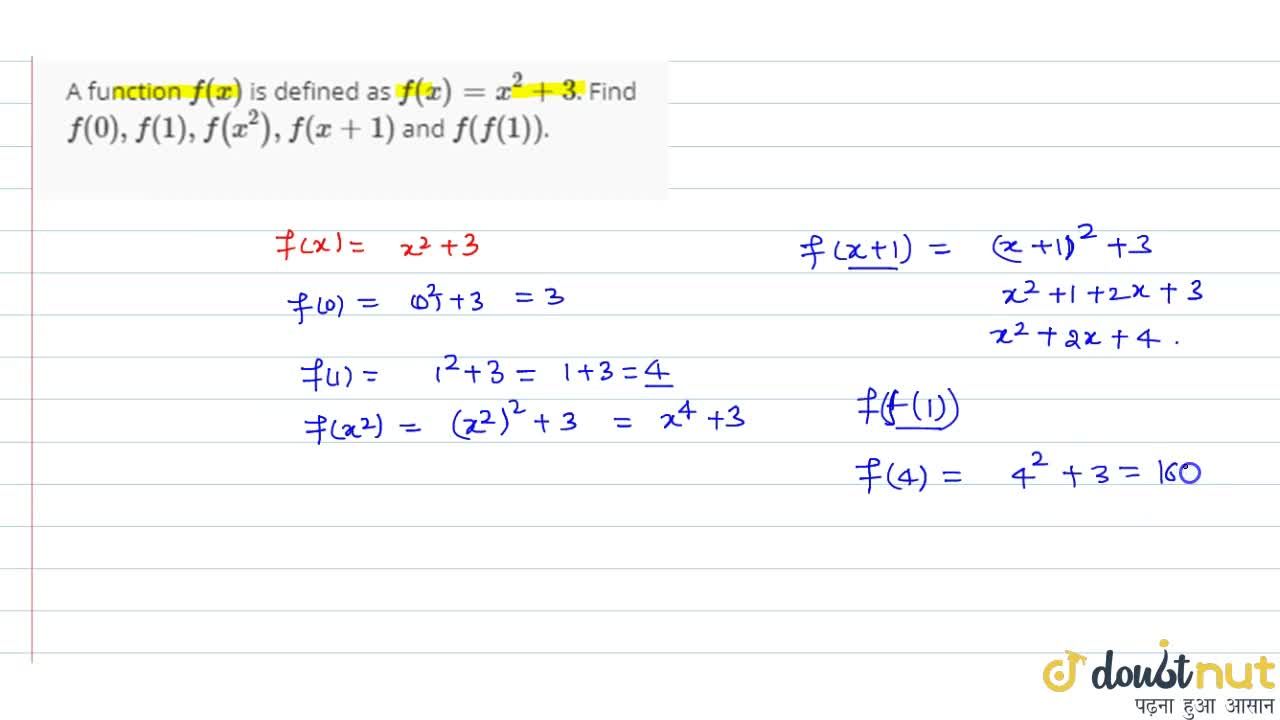 A function f(x) is defined as f(x) = x² + 3. Find
f(0), f(1), f(x²), f(x + 1) and f(f(1)).
f(x) = x² + 3
f(0) = (0²) + 3 = 3
f(1) = 1² + 3 = 1 + 3 = 4
f(x²) = (x²)² + 3 = x⁴ + 3
f(x+1) = (x+1)² + 3
x² + 1 + 2x + 3
x² + 2x + 4 .
f(f(1))
f(4) = 4² + 3 =
doubtnut
पढ़ना हुआ आसान